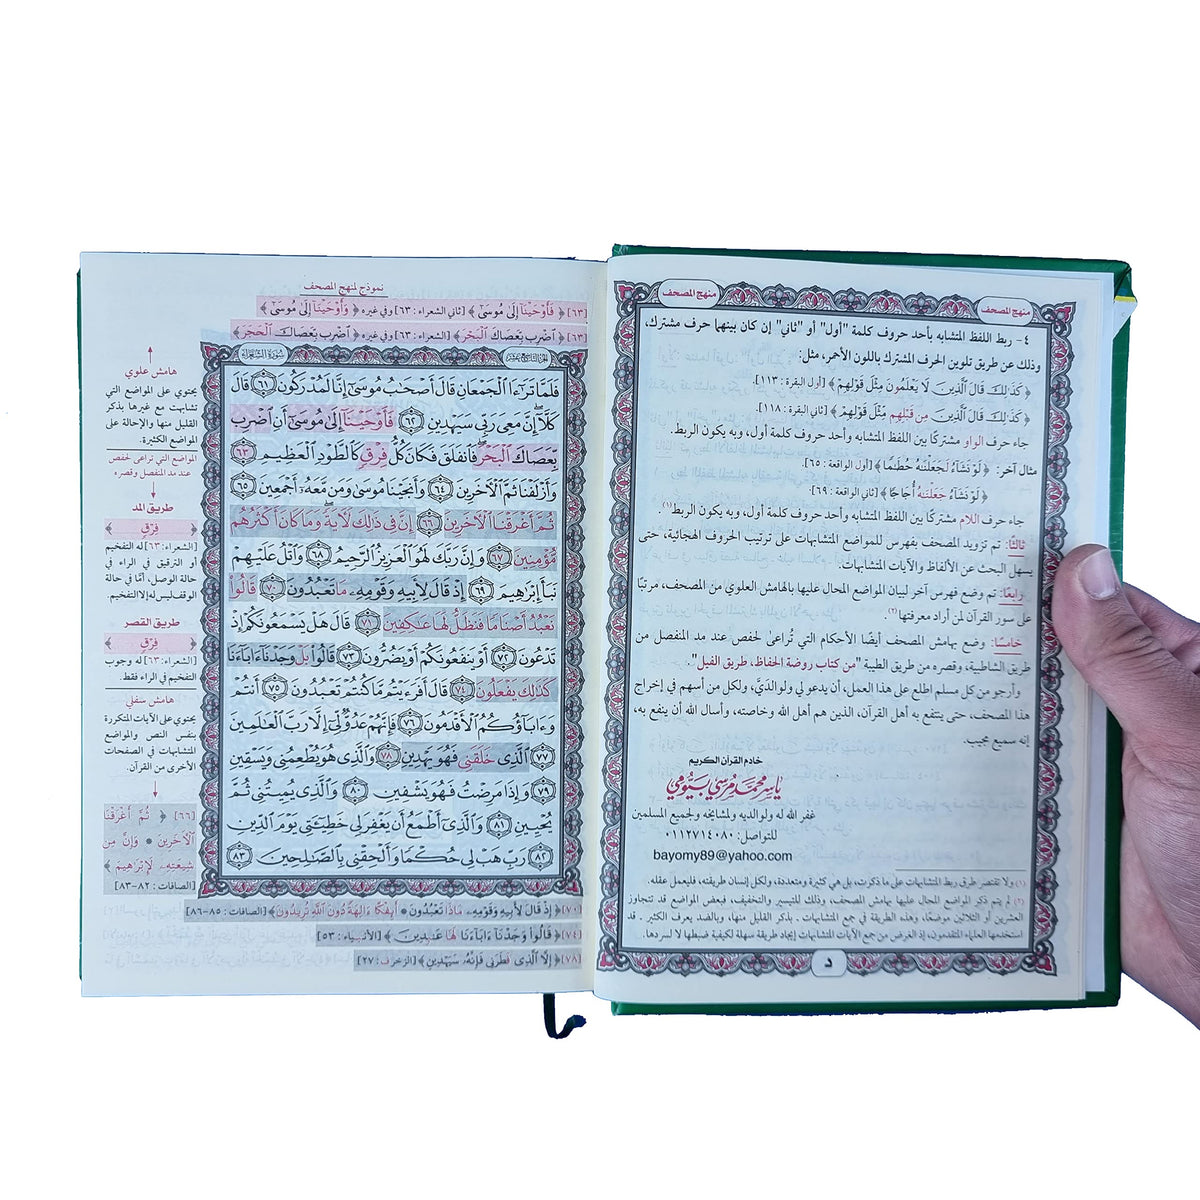 منهج المصحف
منهج المصحف
٤- ربط اللفظ المتشابه بأحد حروف كلمة "أول" أو "ثاني" إن كان بينهما حرف مشترك،
وذلك عن طريق تلوين الحرف المشترك باللون الأحمر، مثل:
﴿ كَذَٰلِكَ قَالَ الَّذِينَ لَا يَعْلَمُونَ مِثْلَ قَوْلِهِمْ ﴾ [أول البقرة: ١١٣].
﴿ كَذَٰلِكَ قَالَ الَّذِينَ مِن قَبْلِهِم مِّثْلَ قَوْلِهِمْ ﴾ [ثاني البقرة: ١١٨].
جاء حرف الواو مشتركًا بين اللفظ المتشابه وأحد حروف كلمة أول، وبه يكون الربط.
مثال آخر: ﴿ لَوْ نَشَاءُ لَجَعَلْنَٰهُ حُطَٰمًا ﴾ [أول الواقعة: ٦٥].
﴿ لَوْ نَشَاءُ جَعَلْنَٰهُ أُجَاجًا ﴾ [ثاني الواقعة: ٦٩].
جاء حرف اللام مشتركًا بين اللفظ المتشابه وأحد حروف كلمة أول، وبه يكون الربط(١).
ثالثًا: تم تزويد المصحف بفهرس للمواضع المتشابهات على ترتيب الحروف الهجائية، حتى
يسهل البحث عن الألفاظ والآيات المتشابهات.
رابعًا: تم وضع فهرس آخر لبيان المواضع المحال عليها بالهامش العلوي من المصحف، مرتبًا
على سور القرآن لمن أراد معرفتها(٢).
خامسًا: وضع بهامش المصحف أيضًا الأحكام التي تُراعى لحفص عند مد المنفصل من
طريق الشاطبية، وقصره من طريق الطيبة "من كتاب روضة الحفاظ، طريق الفيل".
وأرجو من كل مسلم اطلع على هذا العمل، أن يدعو لي ولوالديَّ، ولكل من أسهم في إخراج
هذا المصحف، حتى ينتفع به أهل القرآن، الذين هم أهل الله وخاصته، وأسال الله أن ينفع به،
إنه سميع مجيب.
خادم القرآن الكريم
ياسر محمد مرسي بيومي
غفر الله له ولوالديه ومشايخه ولجميع المسلمين
للتواصل: ٠١١٢٧١٤٠٨٠
bayomy89@yahoo.com
(١) ولا تقتصر طرق ربط المتشابهات على ما ذكرت، بل هي كثيرة ومتعددة، ولكل إنسان طريقته، فليعمل عقله.
(٢) لم يتم ذكر المواضع المحال عليها بهامش المصحف، وذلك للتيسير والتخفيف، فبعض المواضع قد تتجاوز
العشرين أو الثلاثين موضعًا، وهذه الطريقة في جمع المتشابهات . بذكر القليل منها، وبالضد يعرف الكثير . قد
استخدمها العلماء المتقدمون، إذ الغرض من جمع الآيات المتشابهات إيجاد طريقة سهلة لكيفية ضبطها لا لسردها.
د
نموذج لمنهج المصحف
[٦٣] ﴿ فَأَوْحَيْنَا إِلَىٰ مُوسَىٰ ﴾ [ثاني الشعراء: ٦٣] وفي غيره ﴿ وَأَوْحَيْنَا إِلَىٰ مُوسَىٰ ﴾
[٦٣] ﴿ اضْرِب بِّعَصَاكَ الْبَحْرَ ﴾ [الشعراء: ٦٣] وفي غيره ﴿ اضْرِب بِّعَصَاكَ الْحَجَرَ ﴾
الجزء التاسع عشر
سورة الشعراء
فَلَمَّا تَرَٰٓءَا ٱلْجَمْعَانِ قَالَ أَصْحَٰبُ مُوسَىٰٓ إِنَّا لَمُدْرَكُونَ ٦١ قَالَ
كَلَّآ إِنَّ مَعِىَ رَبِّى سَيَهْدِينِ ٦٢ فَأَوْحَيْنَآ إِلَىٰ مُوسَىٰٓ أَنِ ٱضْرِب
بِّعَصَاكَ ٱلْبَحْرَ فَٱنفَلَقَ فَكَانَ كُلُّ فِرْقٍ كَٱلطَّوْدِ ٱلْعَظِيمِ ٦٣
وَأَزْلَفْنَا ثَمَّ ٱلْءَاخَرِينَ ٦٤ وَأَنجَيْنَا مُوسَىٰ وَمَن مَّعَهُۥٓ أَجْمَعِينَ ٦٥
ثُمَّ أَغْرَقْنَا ٱلْءَاخَرِينَ ٦٦ إِنَّ فِى ذَٰلِكَ لَءَايَةً وَمَا كَانَ أَكْثَرُهُم
مُّؤْمِنِينَ ٦٧ وَإِنَّ رَبَّكَ لَهُوَ ٱلْعَزِيزُ ٱلرَّحِيمُ ٦٨ وَٱتْلُ عَلَيْهِمْ
نَبَأَ إِبْرَٰهِيمَ ٦٩ إِذْ قَالَ لِأَبِيهِ وَقَوْمِهِۦ مَا تَعْبُدُونَ ٧٠ قَالُوا۟
نَعْبُدُ أَصْنَامًا فَنَظَلُّ لَهَا عَٰكِفِينَ ٧١ قَالَ هَلْ يَسْمَعُونَكُمْ إِذْ
تَدْعُونَ ٧٢ أَوْ يَنفَعُونَكُمْ أَوْ يَضُرُّونَ ٧٣ قَالُوا۟ بَلْ وَجَدْنَآ ءَابَآءَنَا
كَذَٰلِكَ يَفْعَلُونَ ٧٤ قَالَ أَفَرَءَيْتُم مَّا كُنتُمْ تَعْبُدُونَ ٧٥ أَنتُمْ
وَءَابَآؤُكُمُ ٱلْأَقْدَمُونَ ٧٦ فَإِنَّهُمْ عَدُوٌّ لِّىٓ إِلَّا رَبَّ ٱلْعَٰلَمِينَ
٧٧ ٱلَّذِى خَلَقَنِى فَهُوَ يَهْدِينِ ٧٨ وَٱلَّذِى هُوَ يُطْعِمُنِى وَيَسْقِينِ
٧٩ وَإِذَا مَرِضْتُ فَهُوَ يَشْفِينِ ٨٠ وَٱلَّذِى يُمِيتُنِى ثُمَّ
يُحْيِينِ ٨١ وَٱلَّذِىٓ أَطْمَعُ أَن يَغْفِرَ لِى خَطِيٓـَٔتِى يَوْمَ ٱلدِّينِ
٨٢ رَبِّ هَبْ لِى حُكْمًا وَأَلْحِقْنِى بِٱلصَّٰلِحِينَ ٨٣
هامش علوي
يحتوي على المواضع التي
تشابهت مع غيرها بذكر
القليل منها والإحالة على
المواضع الكثيرة.
المواضع التي تراعى لحفص
عند مد المنفصل وقصره
طريق المد
﴿ فِرْقٍ ﴾
[الشعراء: ٦٣] له التفخيم
أو الترقيق في الراء في
حالة الوصل، أمَّا في حالة
الوقف ليس له إلا التفخيم.
طريق القصر
﴿ فِرْقٍ ﴾
[الشعراء: ٦٣] له وجوب
التفخيم في الراء فقط.
هامش سفلي
يحتوي على الآيات المتكررة
بنفس النص والمواضع
المتشابهات في الصفحات
الأخرى من القرآن.
[٦٦] ﴿ ثُمَّ أَغْرَقْنَا
الْآخَرِينَ ۞ وَإِنَّ مِن
شِيعَتِهِ لَإِبْرَاهِيمَ ﴾
[الصافات: ٨٢-٨٣]
[٧٠] ﴿ إِذْ قَالَ لِأَبِيهِ وَقَوْمِهِ مَاذَا تَعْبُدُونَ ۞ أَئِفْكًا آلِهَةً دُونَ اللَّهِ تُرِيدُونَ ﴾ [الصافات: ٨٥-٨٦]
[٧٤] ﴿ قَالُوا وَجَدْنَا آبَاءَنَا لَهَا عَابِدِينَ ﴾ [الأنبياء: ٥٣]
[٧٨] ﴿ إِلَّا الَّذِي فَطَرَنِي فَإِنَّهُ سَيَهْدِينِ ﴾ [الزخرف: ٢٧]